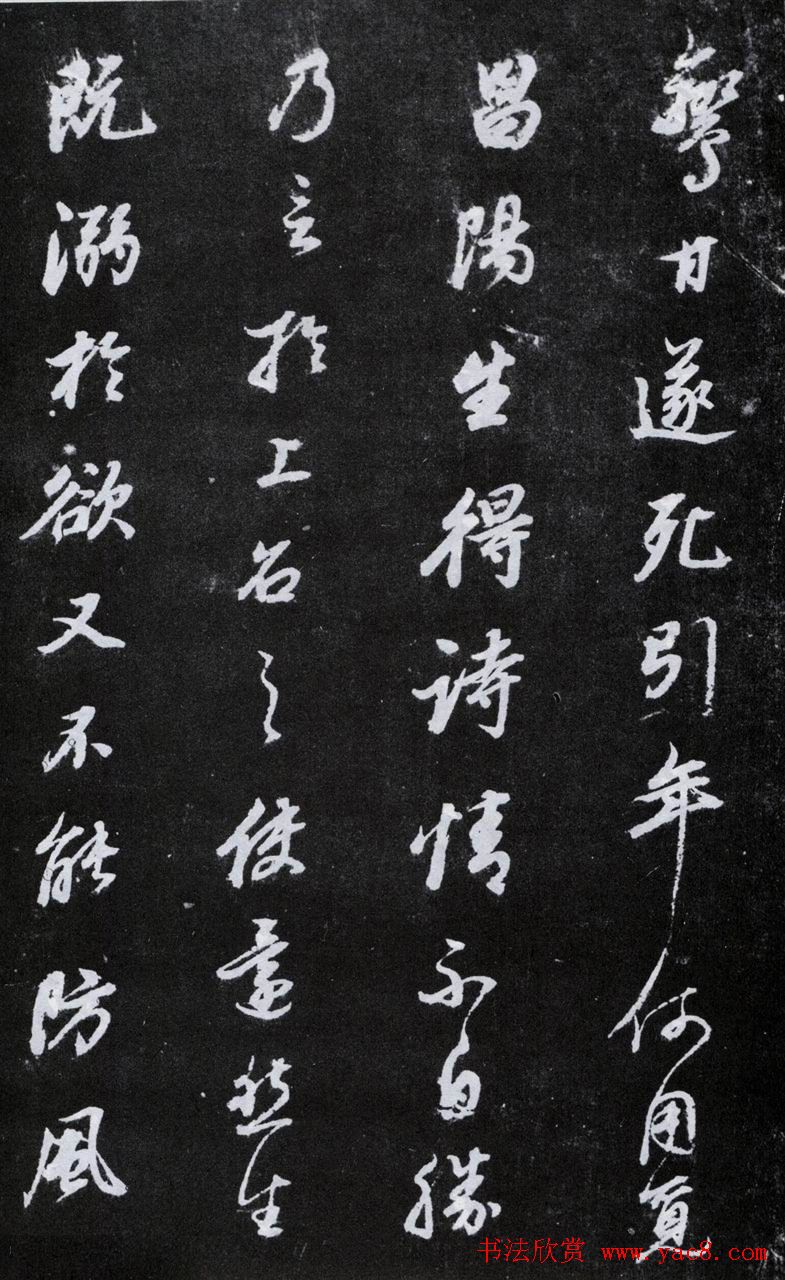 甘遂死引年何用買
昌陽生得詩情不自勝
乃言於上召之使還然生
既溺於欲又不能防風
书法欣赏 www.yac8.com